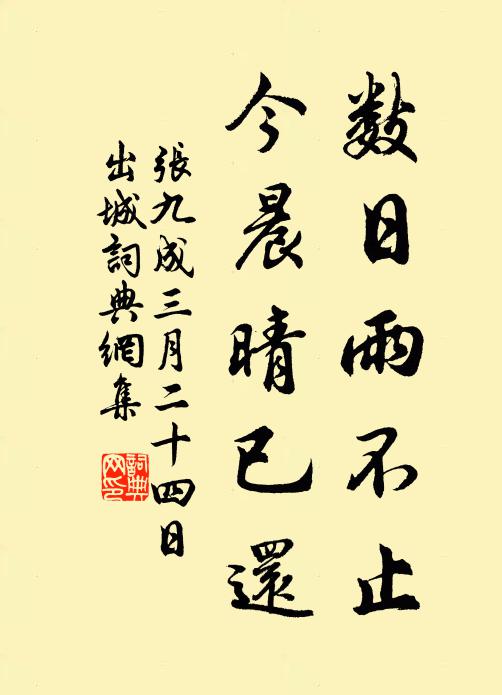 数日雨不止
今晨晴已還
張九成三月二十四日
出城詞典網集
詞典
网印